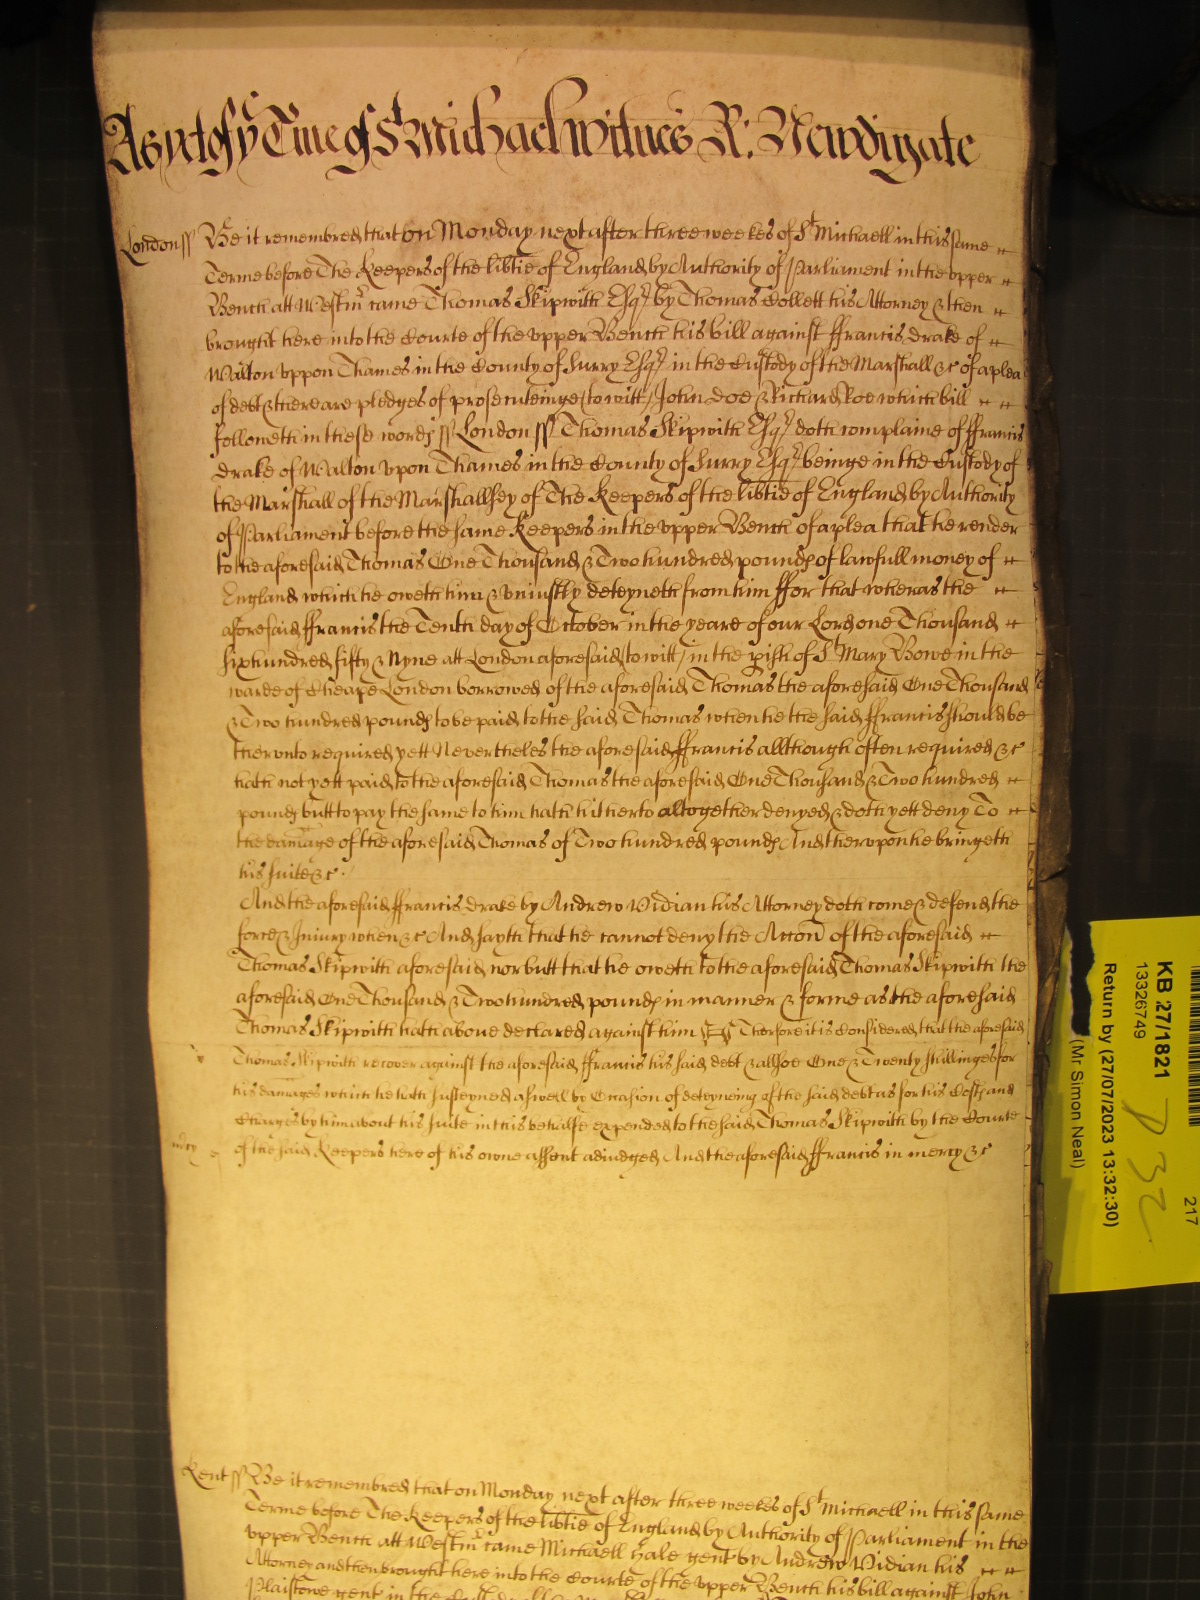 As yet of ye Time of St Michael witnes R: Newdigate
London ss Be it remembred that on Monday next after three weekes of St Michaell in this same
Terme before The Keepers of the libtie of England by Authority of Parliament in the upper
Bench att Westmr came Thomas Skipwith Esqr by Thomas Collett his Attorney & then
brought here into the Courte of the upper Bench his bill against ffrancis drake of
Walton uppon Thames in the County of Surry Esqr in the Custody of the Marshall &c of a plea
of debt & there are pledges of prosecuteinge (to witt) John Doe & Richard Roe which bill
followeth in these words ss London ss Thomas Skipwith Esqr doth complaine of ffrancis
drake of Walton upon Thames in the County of Surry Esqr beinge in the Custody of
the Marshall of the Marshallsey of The Keepers of the libtie of England by Authority
of Parliament before the same Keepers in the upper Bench of a plea that he render
to the aforesaid Thomas One Thousand & Two hundred pounds of lawfull money of
England which he oweth him & uniustly deteyneth from him ffor that whereas the
aforesaid ffrancis the Tenth day of October in the yeare of our Lord one Thousand
six hundred fifty & Nyne att London aforesaid (to witt) in the pish of St Mary Bowe in the
warde of Cheape London borrowed of the aforesaid Thomas the aforesaid One Thousand
& Two hundred pounds to be paid to the said Thomas when he the said ffrancis should be
therunto required yett Nevertheles the aforesaid ffrancis allthough often required &c
hath not yett paid to the aforesaid Thomas the aforesaid One Thousand & Two hundred
pounds butt to pay the same to him hath hitherto altogether denyed & doth yett deny To
the damage of the aforesaid Thomas of Two hundred pounds And therupon he bringeth
his suite &c.
And the aforesaid ffrancis drake by Andrew Vidian his Attorney doth come & defend the
force & Iniury when &c And sayth that he cannot deny the Accon of the aforesaid
Thomas Skipwith aforesaid nor butt that he oweth to the aforesaid Thomas Skipwith the
aforesaid One Thousand & Two hundred pounds in manner & forme as the aforesaid
Thomas Skipwith hath above declared against him Therfore it is Considered that the aforesaid
Thomas Skipwith recover against the aforesaid ffrancis his said debt & allsoe One & Twenty shillinges for
his damages which he hath susteyned aswell by Occasion of deteyneing of the said debt as for his Costs and
Charges by him about his suite in this behalfe expended to the said Thomas Skipwith by the Courte
mercy of the said Keepers here of his owne assent adiudged And the aforesaid ffrancis in mercy &c
Kent ss Be it remembred that on Monday next after three weekes of St Michaell in this same
Terme before The Keepers of the libtie of England by Authority of Parliament in the
upper Bench att Westmr came Michaell Hale gent by Andrew Vidian his
Attorney and then brought here into the Courte of the upper Bench his bill against John
Plaistowe gent in the
KB 27/1821
13326749
Return by (27/07/2023 13:32:30)
(Mr Simon Neal)
217
P 32